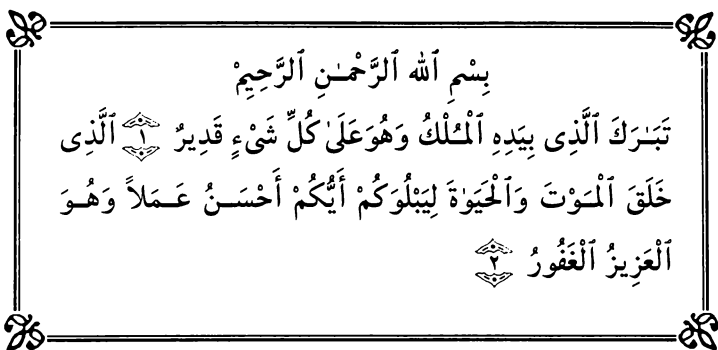 بِسْمِ ٱللهِ ٱلرَّحْمَـٰنِ ٱلرَّحِيمِ
تَبَـٰرَكَ ٱلَّذِى بِيَدِهِ ٱلْمُلْكُ وَهُوَ عَلَىٰ كُلِّ شَىْءٍ قَدِيرٌ ١ ٱلَّذِى
خَلَقَ ٱلْمَوْتَ وَٱلْحَيَوٰةَ لِيَبْلُوَكُمْ أَيُّكُمْ أَحْسَنُ عَمَلاً وَهُوَ
ٱلْعَزِيزُ ٱلْغَفُورُ ٢